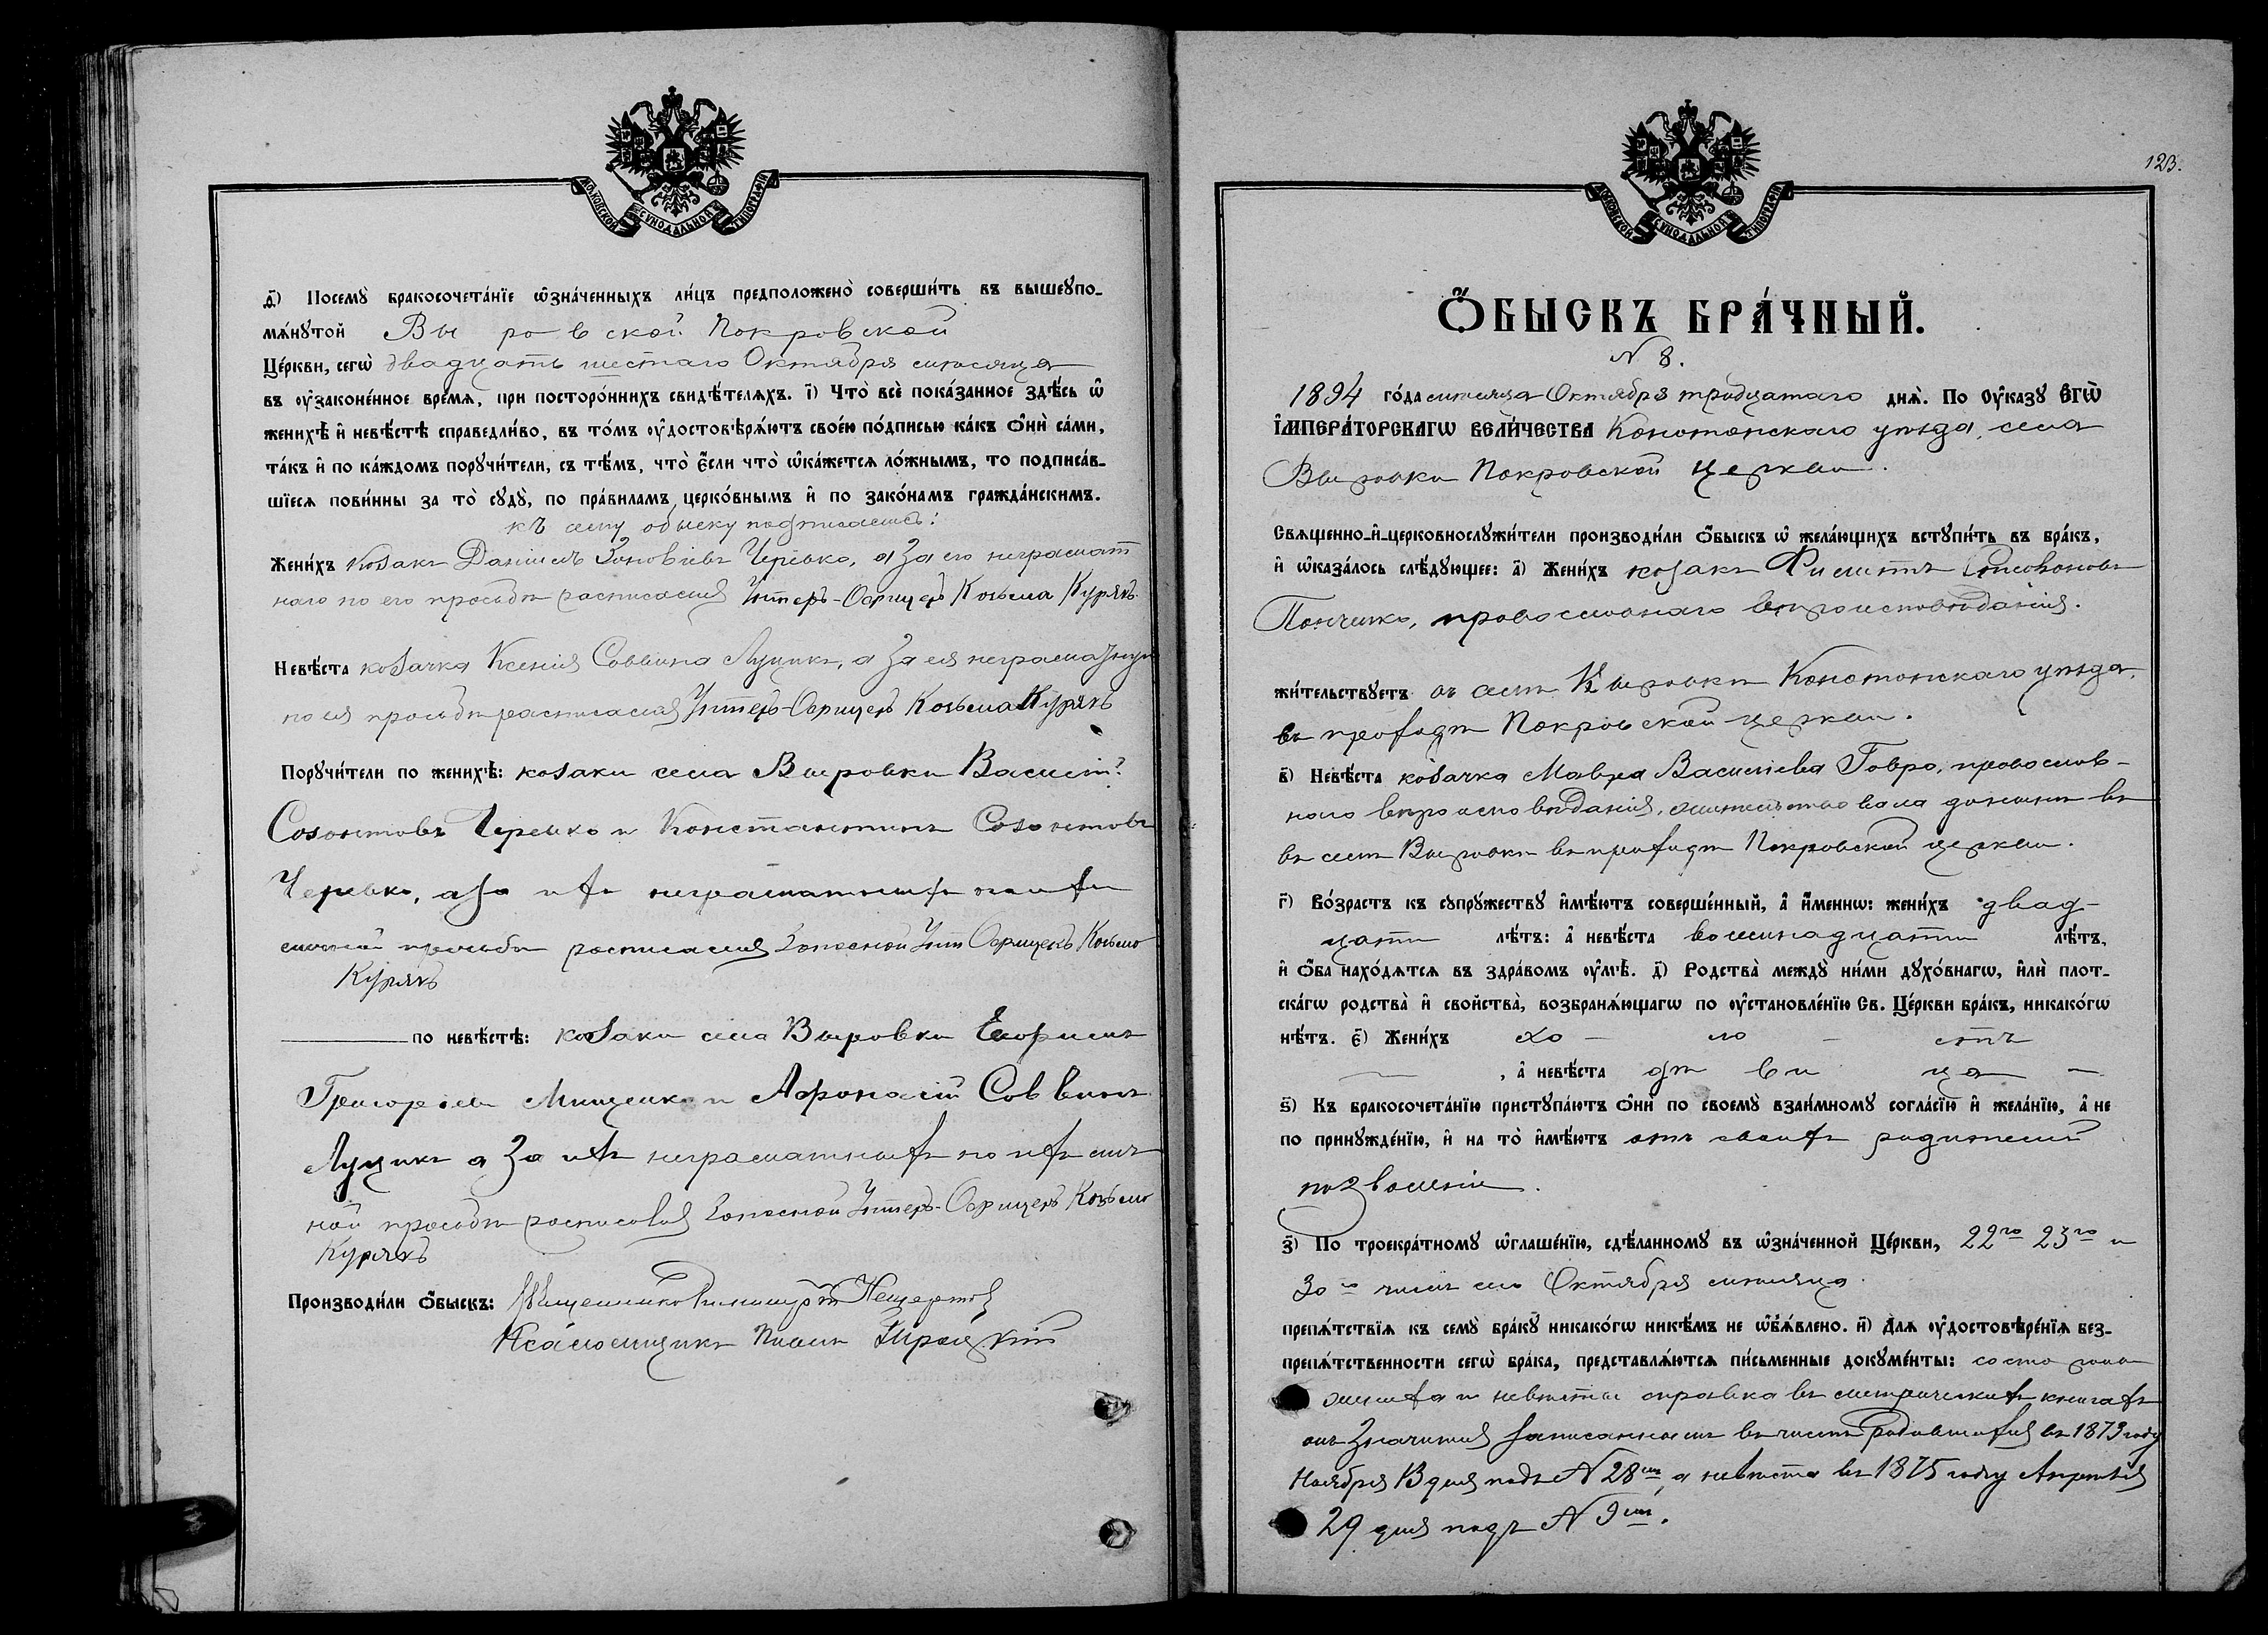 МОСКОВСКОЙ СУНОДАЛЬНОЙ ТИПОГРАФІИ
д҃) Посемꙋ̀ бракосочета́нїе ѡ҆зна́ченныхъ ли́цъ предположено̀ соверши́ть въ вышеꙋпо-
мѧ́нꙋтой Вы ро в ской Покровской
Це́ркви, сегѡ̀ двадцать шестаго Октября мѣсяца
въ ᲂу҆законе́нное вре́мѧ, при посторо́ннихъ свидѣ́телѧхъ. і҃) Что̀ всѐ пока́занное здѣ́сь ѡ҆
женихѣ̀ и҆ невѣ́стѣ справедли́во, въ то́мъ ᲂу҆достовѣрѧ́ютъ свое́ю по́дписью ка́къ ѻ҆нѝ са́ми,
та́къ и҆ по ка́ждомъ порꙋчи́тели, съ тѣ́мъ, что̀ є҆́сли что̀ ѡ҆ка́жетсѧ ло́жнымъ, то подписа́в-
шїесѧ пови́нны за то̀ сꙋдꙋ̀, по пра́виламъ церко́внымъ и҆ по зако́намъ гражда́нскимъ.
къ сему обыску подписались:
Жени́хъ козакъ Даніилъ Зиновіевъ Черевко, а за его неграмот
наго по его просьбѣ расписался Унтеръ-Офицеръ Козьма Курякъ
Невѣ́ста козачка Ксенія Саввина Луцикъ, а за ея неграматную
по ея просьбѣ расписался Унтеръ-Офицеръ Козьма Курякъ
Порꙋчи́тели по женихѣ̀: козаки села Выровки Василій
Созонтовъ Черевко и Константинъ Созонтовъ
Черевко, а за ихъ неграматныхъ по ихъ
личной просьбѣ расписался Запасной Унт Офицеръ Козьма
Курякъ
по невѣ́стѣ: козаки села Выровки Ефимъ
Григорьевъ и Афонасій Саввинъ
Луцикъ а за ихъ неграматныхъ по ихъ лич
ной просьбѣ расписался Запасной Унтеръ-Офицеръ Козьма
Курякъ
Производи́ли ѻ҆́быскъ: Священникъ
Псаломщикъ
123.
МОСКОВСКОЙ СУНОДАЛЬНОЙ ТИПОГРАФІИ
Ѻ҆́БЫСКЪ БРА́ЧНЫЙ.
N 8.
1894 го́да мѣсяца Октября тридцатаго днѧ̀. По Оу҆ка́зꙋ ЕГѠ̀
І҆МПЕРА́ТОРСКАГѠ ВЕЛИ́ЧЕСТВА Конотопскаго уѣзда, села
Выровки Покровской церкви.
Свѧще́нно-и҆-церковнослꙋжи́тели производи́ли ѻ҆́быскъ ѡ҆ жела́ющихъ встꙋпи́ть въ бра́къ,
и҆ ѡ҆каза́лось слѣ́дꙋющее: а҃) Жени́хъ козакъ Филиппъ
православнаго вѣроисповѣданія.
жи́тельствꙋетъ въ селѣ Выровки Конотопскаго уѣзда,
въ приходѣ Покровской церкви.
в҃) Невѣ́ста козачка Мавра Васильева Говра, православ-
наго вѣроисповѣданія, жительствовала донынѣ въ
въ селѣ Выровки въ приходѣ Покровской церкви.
г҃) Во́зрастъ къ сꙋпрꙋ́жествꙋ и҆мѣ́ютъ соверше́нный, а҆ и҆́меннѡ: жени́хъ двад-
цати лѣ́тъ: а҆ невѣ́ста восьмнадцати лѣ́тъ,
и҆ ѻ҆́ба нахо́дѧтсѧ въ здра́вомъ ᲂу҆мѣ̀. д҃) Родства̀ междꙋ̀ ни́ми дꙋхо́внагѡ, и҆лѝ плот-
ска́гѡ родства̀ и҆ свойства̀, возбранѧ́ющагѡ по ᲂу҆становле́нїю Св. Це́ркви бра́къ, никако́гѡ
нѣ́тъ. є҃) Жени́хъ хо – ло – стъ
, а҆ невѣ́ста дѣ ви ца –
ѕ҃) Къ бракосочета́нїю пристꙋпа́ютъ ѻ҆нѝ по своемꙋ̀ взаи́мномꙋ согла́сїю и҆ жела́нїю, а҆ не
по принꙋжде́нїю, и҆ на то̀ и҆мѣ́ютъ отъ своихъ родителей
позволеніе.
з҃) По троекра́тномꙋ ѡ҆глаше́нїю, сдѣ́ланномꙋ въ ѡ҆зна́ченной Це́ркви, 22го 23го и
30го числъ Октября мѣсяца.
препѧ́тствїѧ къ семꙋ̀ бра́кꙋ никако́гѡ никѣ́мъ не ѡ҆б̾ѧ́влено. и҃) Длѧ ᲂу҆достовѣре́нїѧ без-
препѧ́тственности сегѡ̀ бра́ка, представлѧ́ютсѧ пи́сьменные докꙋме́нты:
жениха и невѣсты справка въ метрическихъ книгахъ
онъ значится записаннымъ въ числѣ родившихся въ 1873 году
Ноября 13 дня подъ N 28мъ, а невѣста въ 1875 году Апрѣля
29 дня подъ N 9мъ.